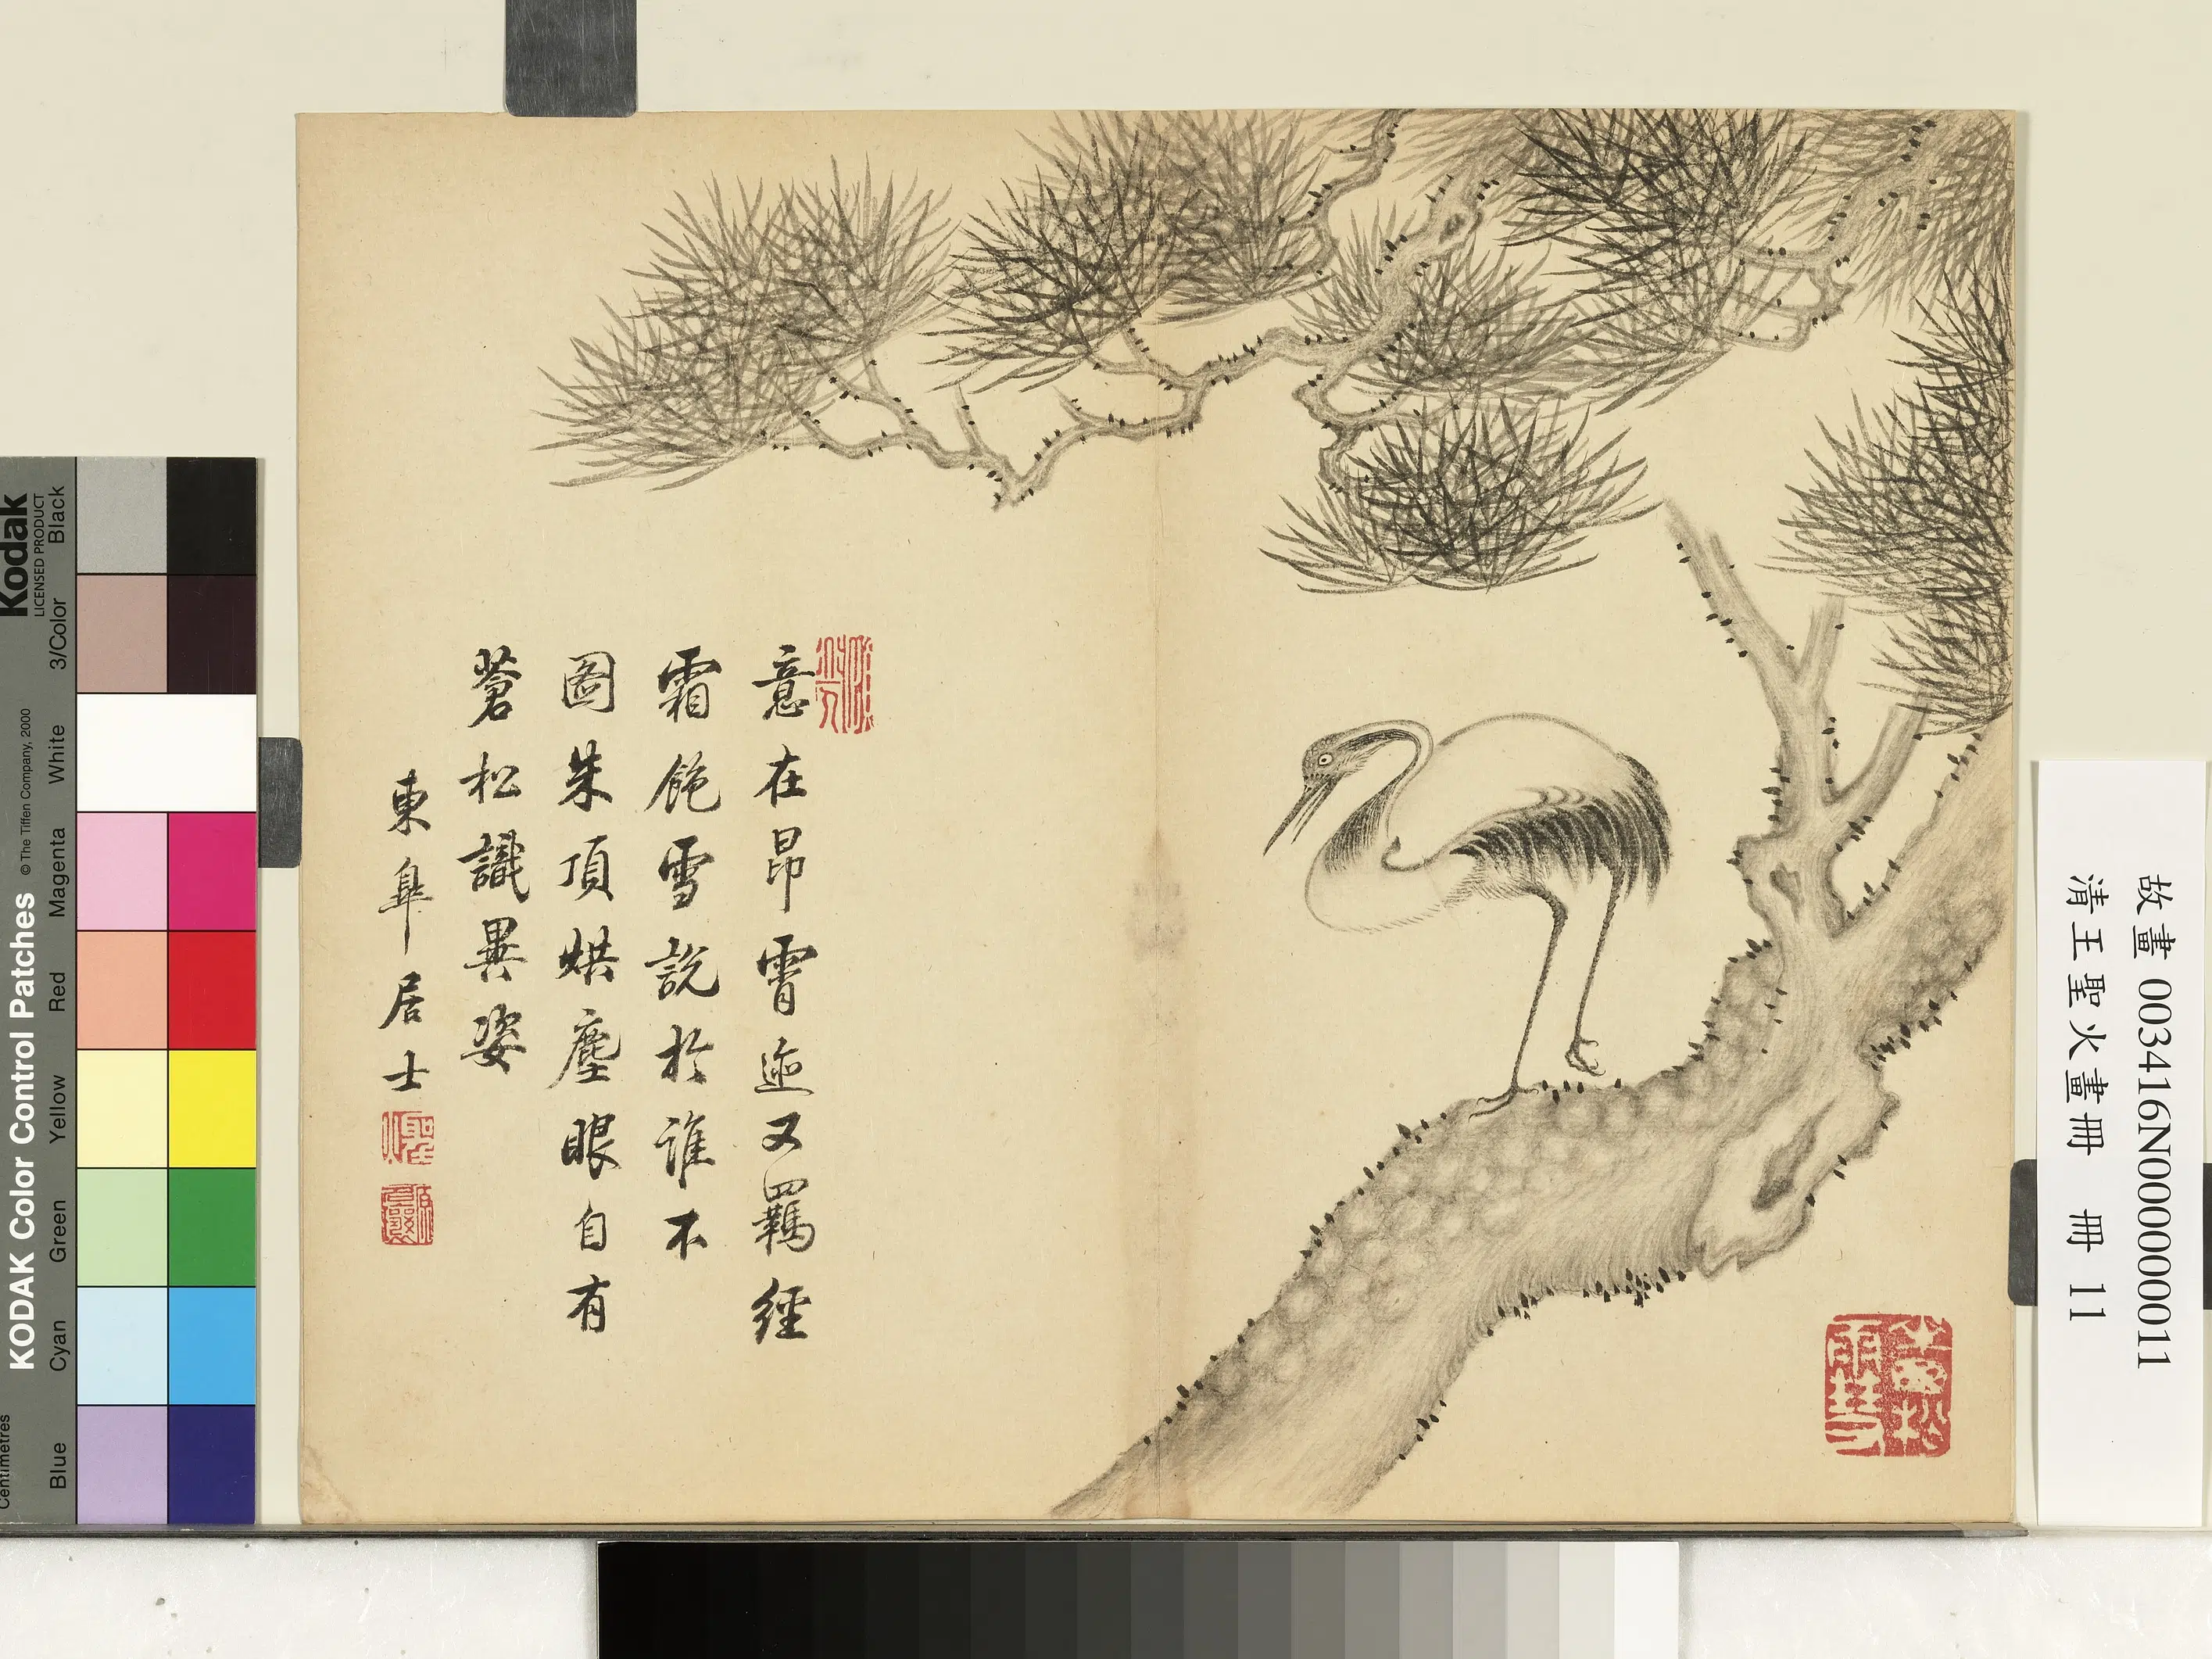 意在昂霄迹又羈經
霜飽雪說於誰不
圖朱頂烘塵眼自有
蒼松識異姿
東皐居士
聖火
故畫 003416N000000011
清王聖火畫冊 冊 11
Kodak
LICENSED PRODUCT
KODAK Color Control Patches
© The Tiffen Company, 2000
Centimetres
Blue
Cyan
Green
Yellow
Red
Magenta
White
3/Color
Black